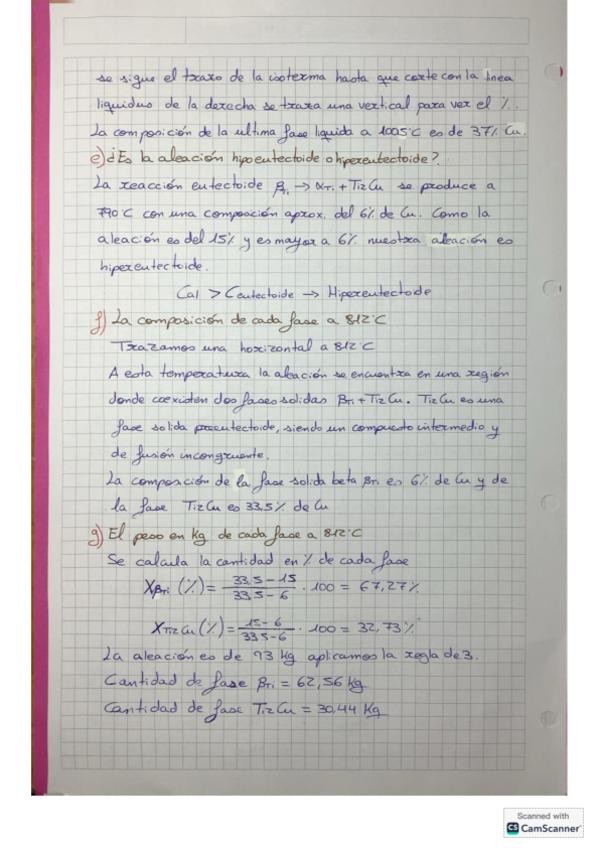 se sigue el trazo de la isoterma hasta que corte con la línea
liquidus de la derecha se traza una vertical para ver el %.
La composición de la ultima fase liquida a 1005°C es de 37% Cu.
e) ¿Es la aleación hipoeutectoide o hipereutectoide?
La reacción eutectoide βTi → αTi + Ti2Cu se produce a
790°C con una composición aprox. del 6% de Cu. Como la
aleación es del 15% y es mayor a 6% nuestra aleación es
hipereutectoide.
Cal > Ceutectoide → Hipereutectoide
f) La composición de cada fase a 812°C
Trazamos una horizontal a 812°C
A esta temperatura la aleación se encuentra en una región
donde coexisten dos fases solidas βTi + Ti2Cu. Ti2Cu es una
fase solida proeutectoide, siendo un compuesto intermedio y
de fusión incongruente.
La composición de la fase solida beta βTi es 6% de Cu y de
la fase Ti2Cu es 33,5% de Cu
g) El peso en kg de cada fase a 812°C
Se calcula la cantidad en % de cada fase
XβTi (%) = 33,5-15 / 33,5-6 · 100 = 67,27%
XTi2Cu (%) = 15-6 / 33,5-6 · 100 = 32,73%
La aleación es de 93 kg aplicamos la regla de 3.
Cantidad de fase βTi = 62,56 kg
Cantidad de fase Ti2Cu = 30,44 kg
Scanned with
CS CamScanner